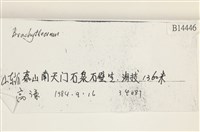 B14446
Brachythecium
山东省泰山南天门石泉石壁生 海拔1360米
高谦 1984-9-16